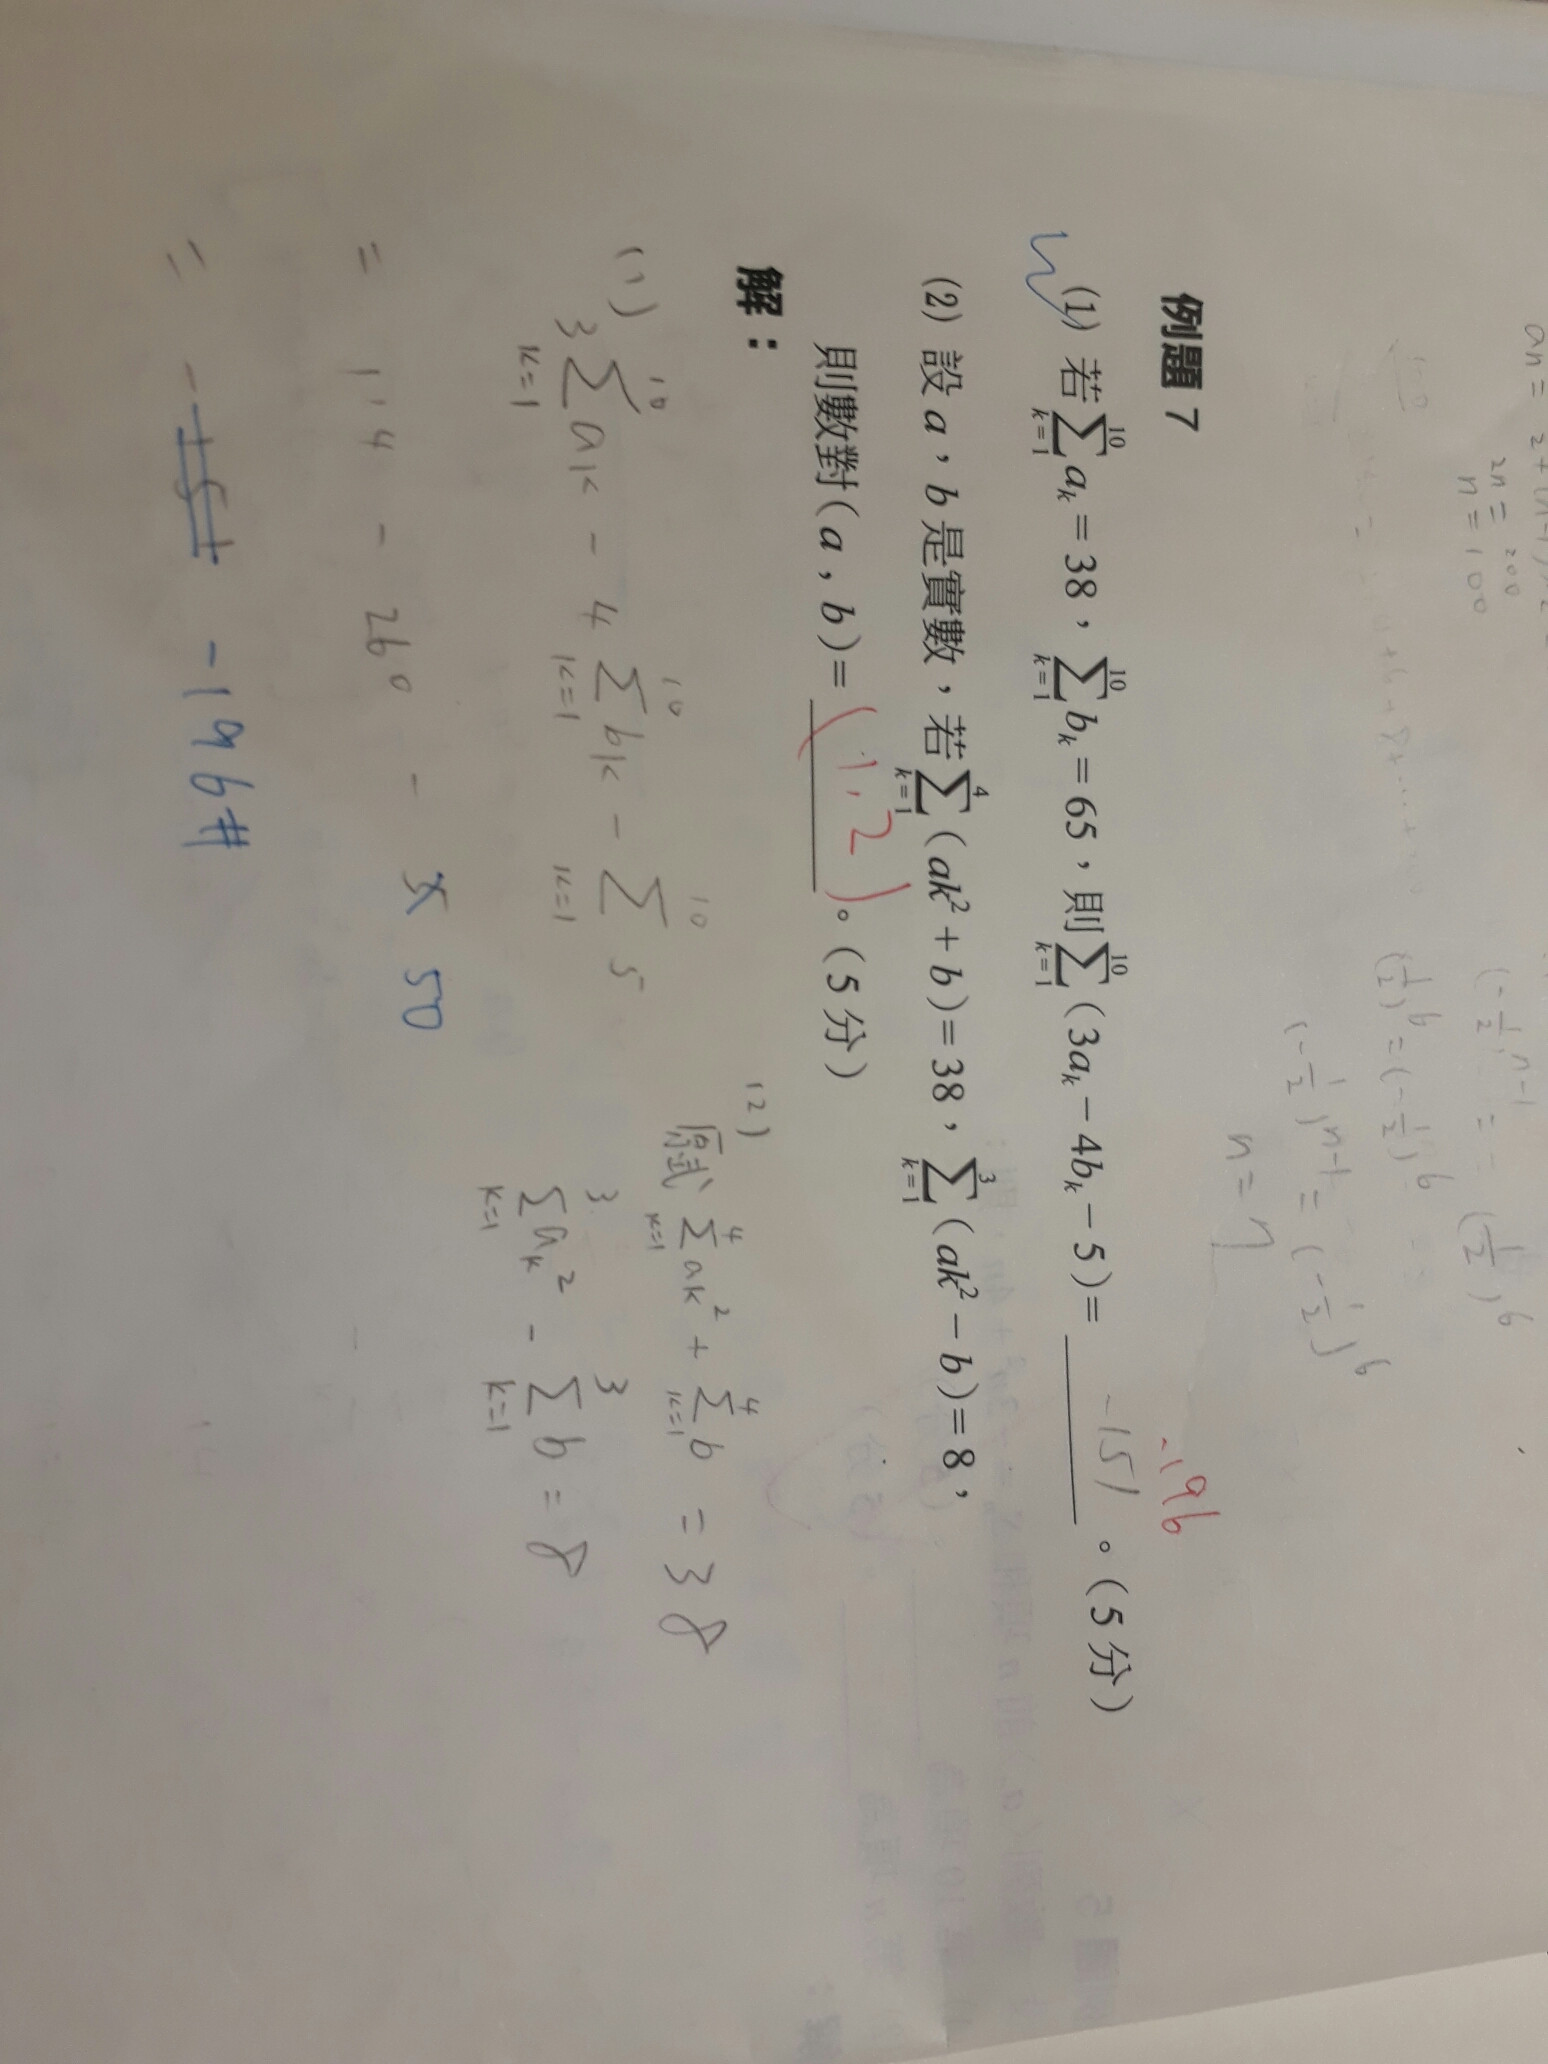 an =
2n = 200
n = 100
(-1/2)^{n-1} = - (1/2)^6
(1/2)^6 = (-1/2)^6
(-1/2)^{n-1} = (-1/2)^6
n = 7
例題 7
(1) 若 \sum_{k=1}^{10} a_k = 38，\sum_{k=1}^{10} b_k = 65，則 \sum_{k=1}^{10} (3a_k - 4b_k - 5) = -151 -196 。(5 分)
(2) 設 a，b 是實數，若 \sum_{k=1}^{4} (ak^2 + b) = 38，\sum_{k=1}^{3} (ak^2 - b) = 8，
則數對 (a，b) = (1, 2) 。(5 分)
解：
(1) 3 \sum_{k=1}^{10} ak - 4 \sum_{k=1}^{10} bk - \sum_{k=1}^{10} 5
= 114 - 260 - 5 50
= -151 -196#
(2)
原式 \sum_{k=1}^{4} ak^2 + \sum_{k=1}^{4} b = 38
\sum_{k=1}^{3} a_k^2 - \sum_{k=1}^{3} b = 8